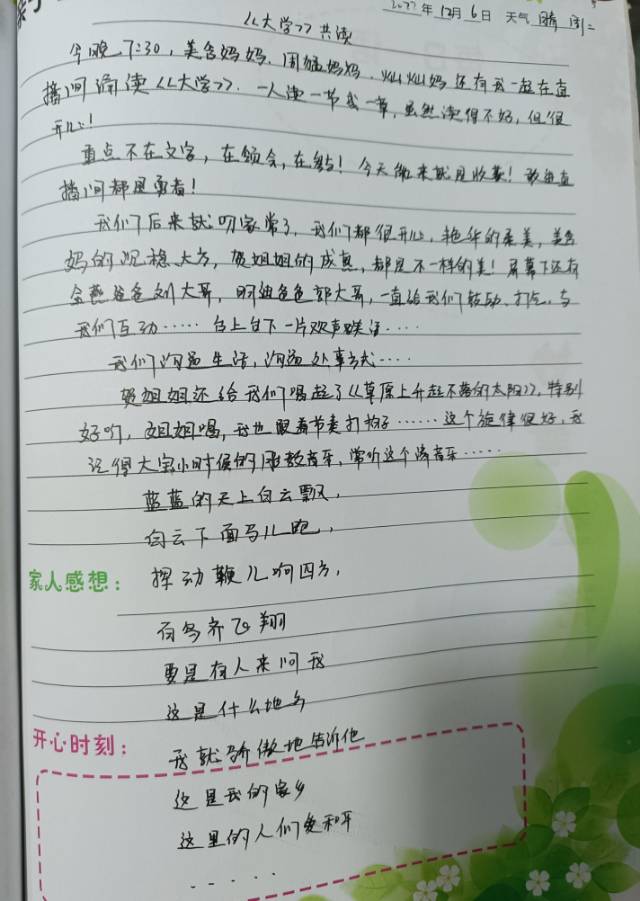 2022年12月6日 天气 晴 周二
《大学》共读
今晚7:30,美含妈妈、周妈妈、灿灿妈还有我一起在直
播间诵读《大学》.一人读一节或一章,虽然读得不好,但很
开心!
重点不在文字,在领会,在参与!今天能来就是收获!敢进直
播间都是勇者!
我们后来就叨家常了,我们都很开心,艳华的柔美,美含
妈的沉稳大方,贺姐姐的成熟,都是不一样的美!屏幕下还有
爸爸刘大哥,爸爸郭大哥,一直给我们鼓励、打气,与
我们互动……台上台下一片欢声笑语....
我们沟通生活,沟通处事方式....
贺姐姐还给我们唱起了《草原上升起不落的太阳》,特别
好听,姐姐唱,我也跟着节奏打拍子……这个旋律很好,我
记得大宝小时候的胎教音乐,常听这个的音乐……
蓝蓝的天上白云飘,
白云下面马儿跑,
家人感想:
挥动鞭儿响四方,
百鸟齐飞翔
要是有人来问我
这是什么地方
开心时刻:
我就骄傲地告诉他
这是我的家乡
这里的人们爱和平
.....